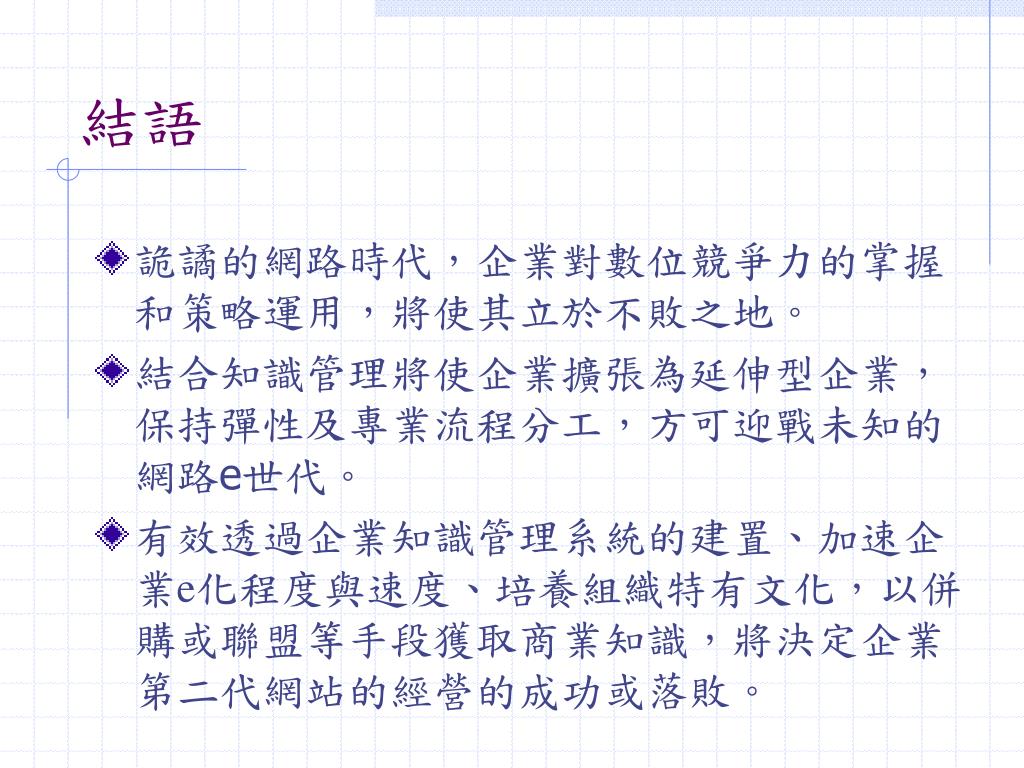 結語
詭譎的網路時代，企業對數位競爭力的掌握
和策略運用，將使其立於不敗之地。
結合知識管理將使企業擴張為延伸型企業，
保持彈性及專業流程分工，方可迎戰未知的
網路e世代。
有效透過企業知識管理系統的建置、加速企
業e化程度與速度、培養組織特有文化，以併
購或聯盟等手段獲取商業知識，將決定企業
第二代網站的經營的成功或落敗。